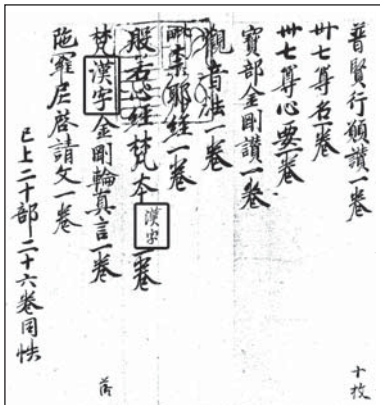 普賢行願讃一巻
卅七尊名一巻
卅七尊心要一巻
寶部金剛讃一巻
觀音法一巻
耶經一巻
般若心經梵本漢字一巻
梵漢字金剛輪真言一巻
陁羅尼啓請文一巻
已上二十部二十六巻同帙
十枚